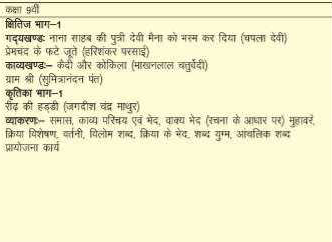 कक्षा 9वीं
क्षितिज भाग–1
गद्यखण्डः नाना साहब की पुत्री देवी मैना को भस्म कर दिया (चपला देवी)
प्रेमचंद के फटे जूते (हरिशंकर परसाई)
काव्यखण्डः– कैदी और कोकिला (माखनलाल चतुर्वेदी)
ग्राम श्री (सुमित्रानंदन पंत)
कृतिका भाग–1
रीढ़ की हड्डी (जगदीश चंद्र माथुर)
व्याकरणः– समास, काव्य परिचय एवं भेद, वाक्य भेद (रचना के आधार पर) मुहावरें,
क्रिया विशेषण, वर्तनी, विलोम शब्द, क्रिया के भेद, शब्द युग्म, आंचलिक शब्द
प्रायोजना कार्य